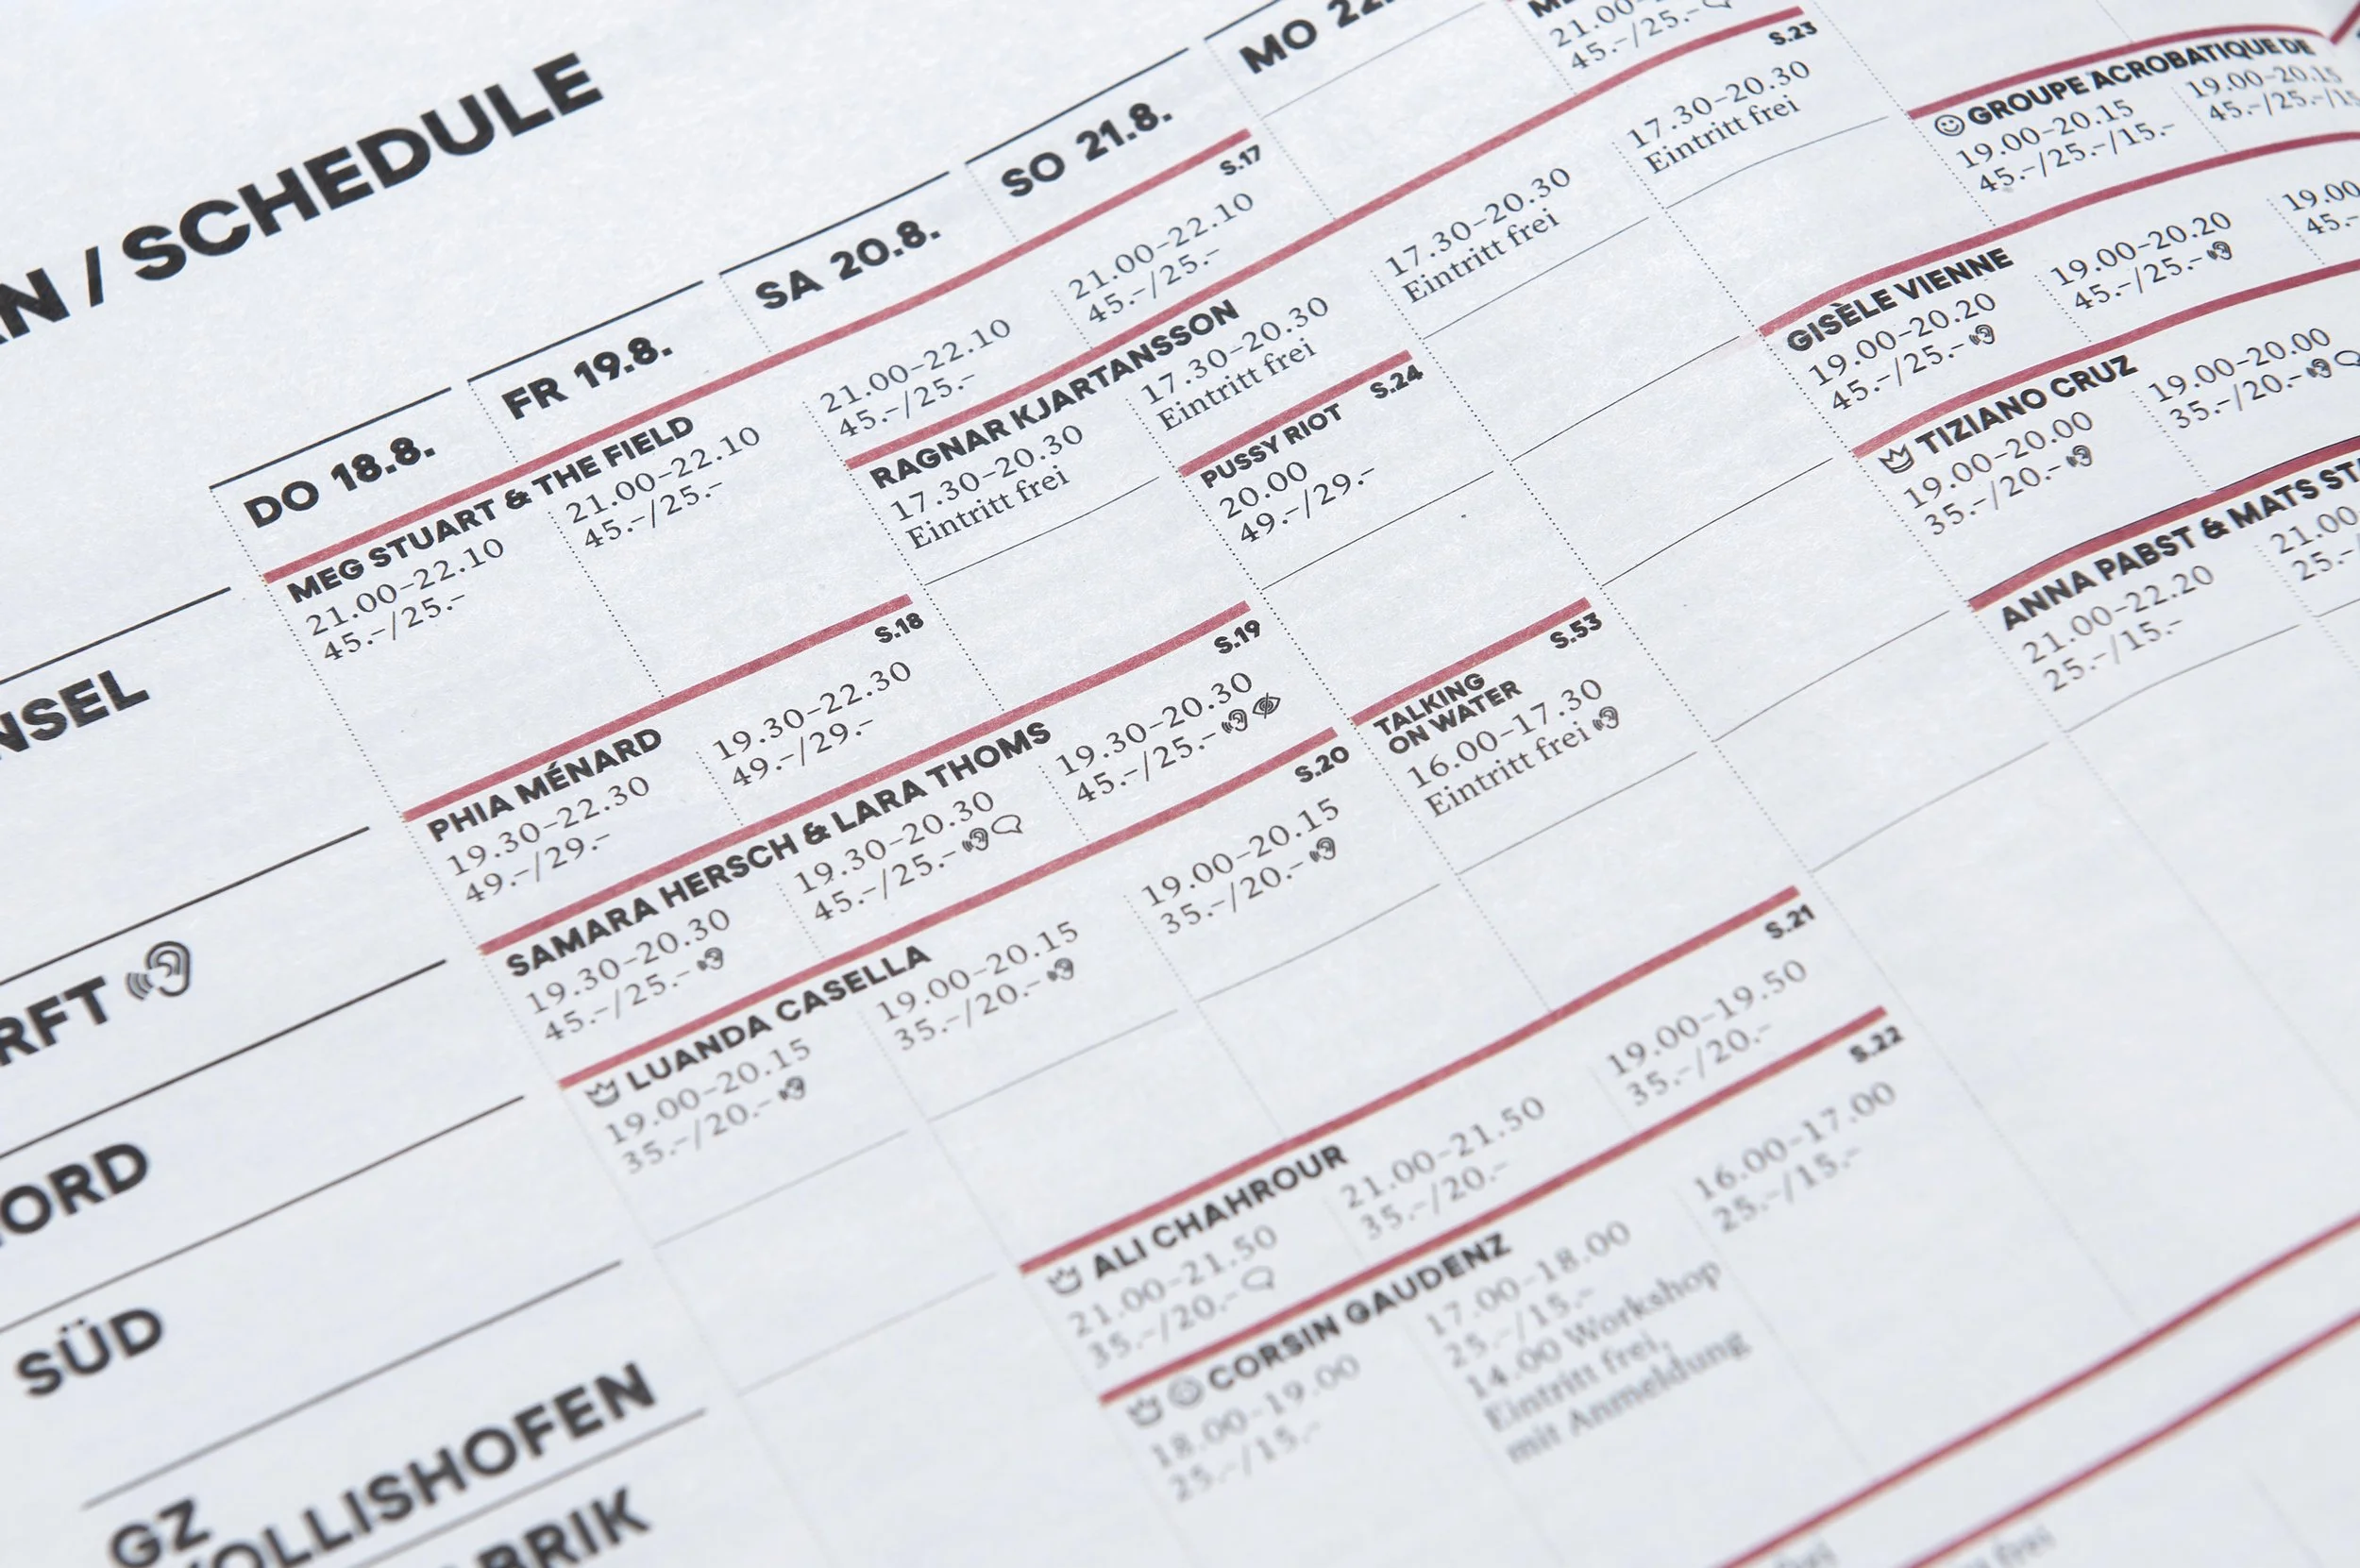 / SCHEDULE
DO 18.8.
FR 19.8.
SA 20.8.
SO 21.8.
MO
MEG STUART & THE FIELD
S.17
21.00–22.10
45.–/25.–
21.00–22.10
45.–/25.–
21.00–22.10
45.–/25.–
21.00–22.10
45.–/25.–
RAGNAR KJARTANSSON
S.23
17.30–20.30
Eintritt frei
17.30–20.30
Eintritt frei
17.30–20.30
Eintritt frei
17.30–20.30
Eintritt frei
45.–/25.–
PUSSY RIOT
S.24
20.00
49.–/29.–
GROUPE ACROBATIQUE DE
19.00–20.15
45.–/25.–/15.–
19.00–20.15
45.–/25.–/15
GISÈLE VIENNE
19.00–20.20
45.–/25.–
19.00–20.20
45.–/25.–
19.00
45.–
TIZIANO CRUZ
19.00–20.00
35.–/20.–
19.00–20.00
35.–/20.–
ANNA PABST & MATS
21.00–22.20
25.–/15.–
21.00
PHIA MÉNARD
S.18
19.30–22.30
49.–/29.–
19.30–22.30
49.–/29.–
SAMARA HERSCH & LARA THOMS
S.19
19.30–20.30
45.–/25.–
19.30–20.30
45.–/25.–
19.30–20.30
45.–/25.–
TALKING
ON WATER
S.53
16.00–17.30
Eintritt frei
LUANDA CASELLA
S.20
19.00–20.15
35.–/20.–
19.00–20.15
35.–/20.–
19.00–20.15
35.–/20.–
SÜD
ALI CHAHROUR
S.21
21.00–21.50
35.–/20.–
21.00–21.50
35.–/20.–
19.00–19.50
35.–/20.–
GZ
CORSIN GAUDENZ
S.22
18.00–19.00
25.–/15.–
17.00–18.00
25.–/15.–
14.00 Workshop
Eintritt frei,
mit Anmeldung
16.00–17.00
25.–/15.–